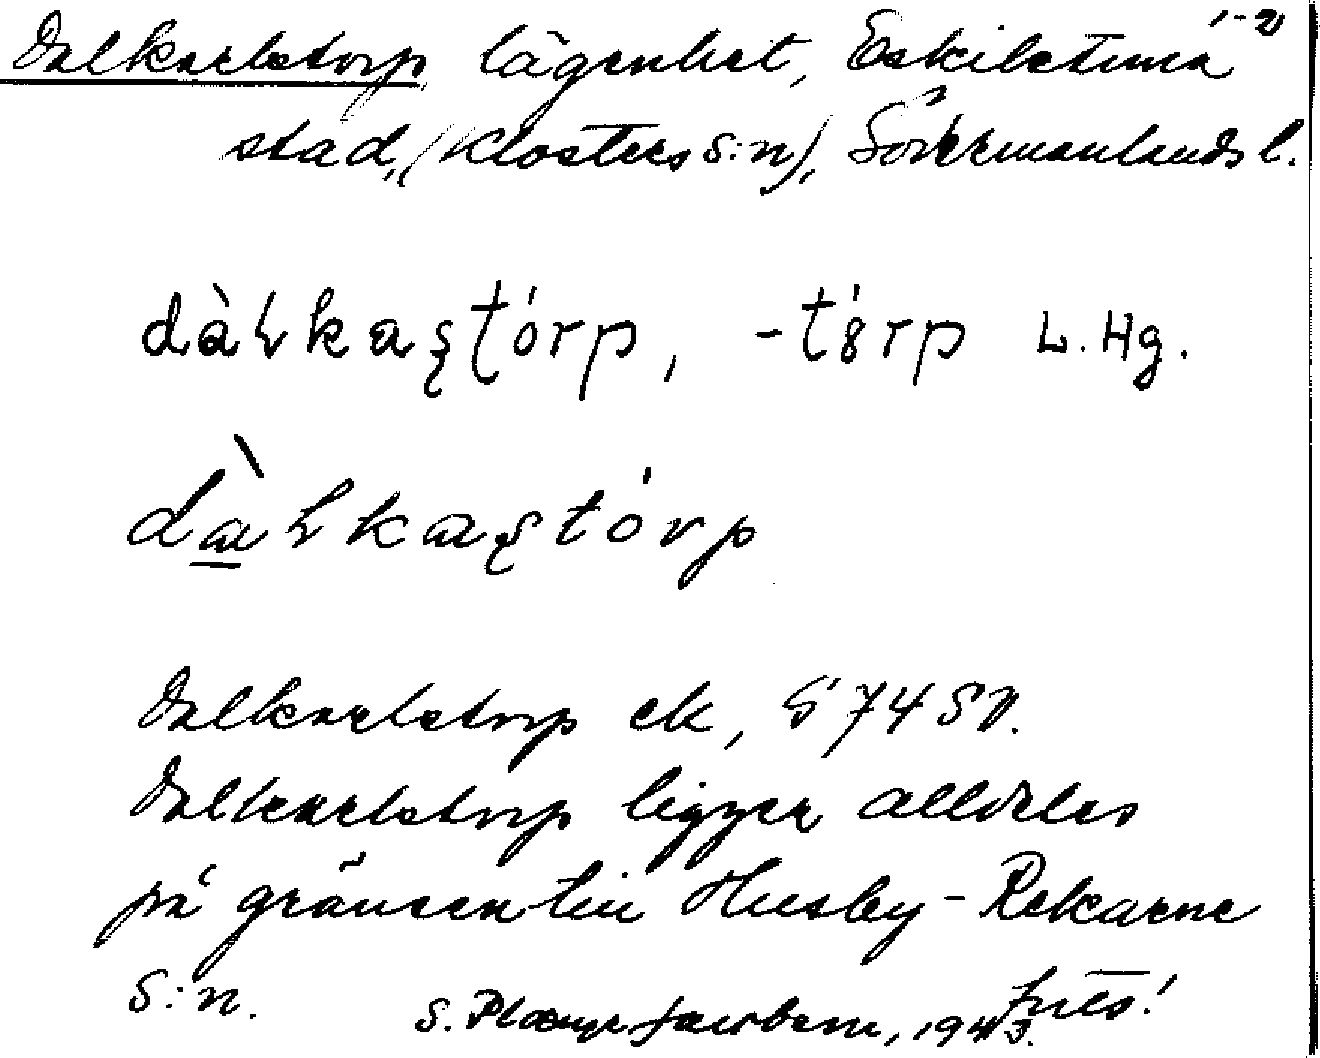 1-2
Dalkarlstorp lägenhet, Eskilstuna
stad, (Klosters s:n), Södermanlands l.
dàⱡkaʂʈórp, -tórp L. Hg.
dàⱡkaʂtórp
Dalkarlstorp ek, S 74 SV.
Dalkarlstorp ligger alldeles
på gränsen till Husby-Rekarne
s:n.
S. 1943.